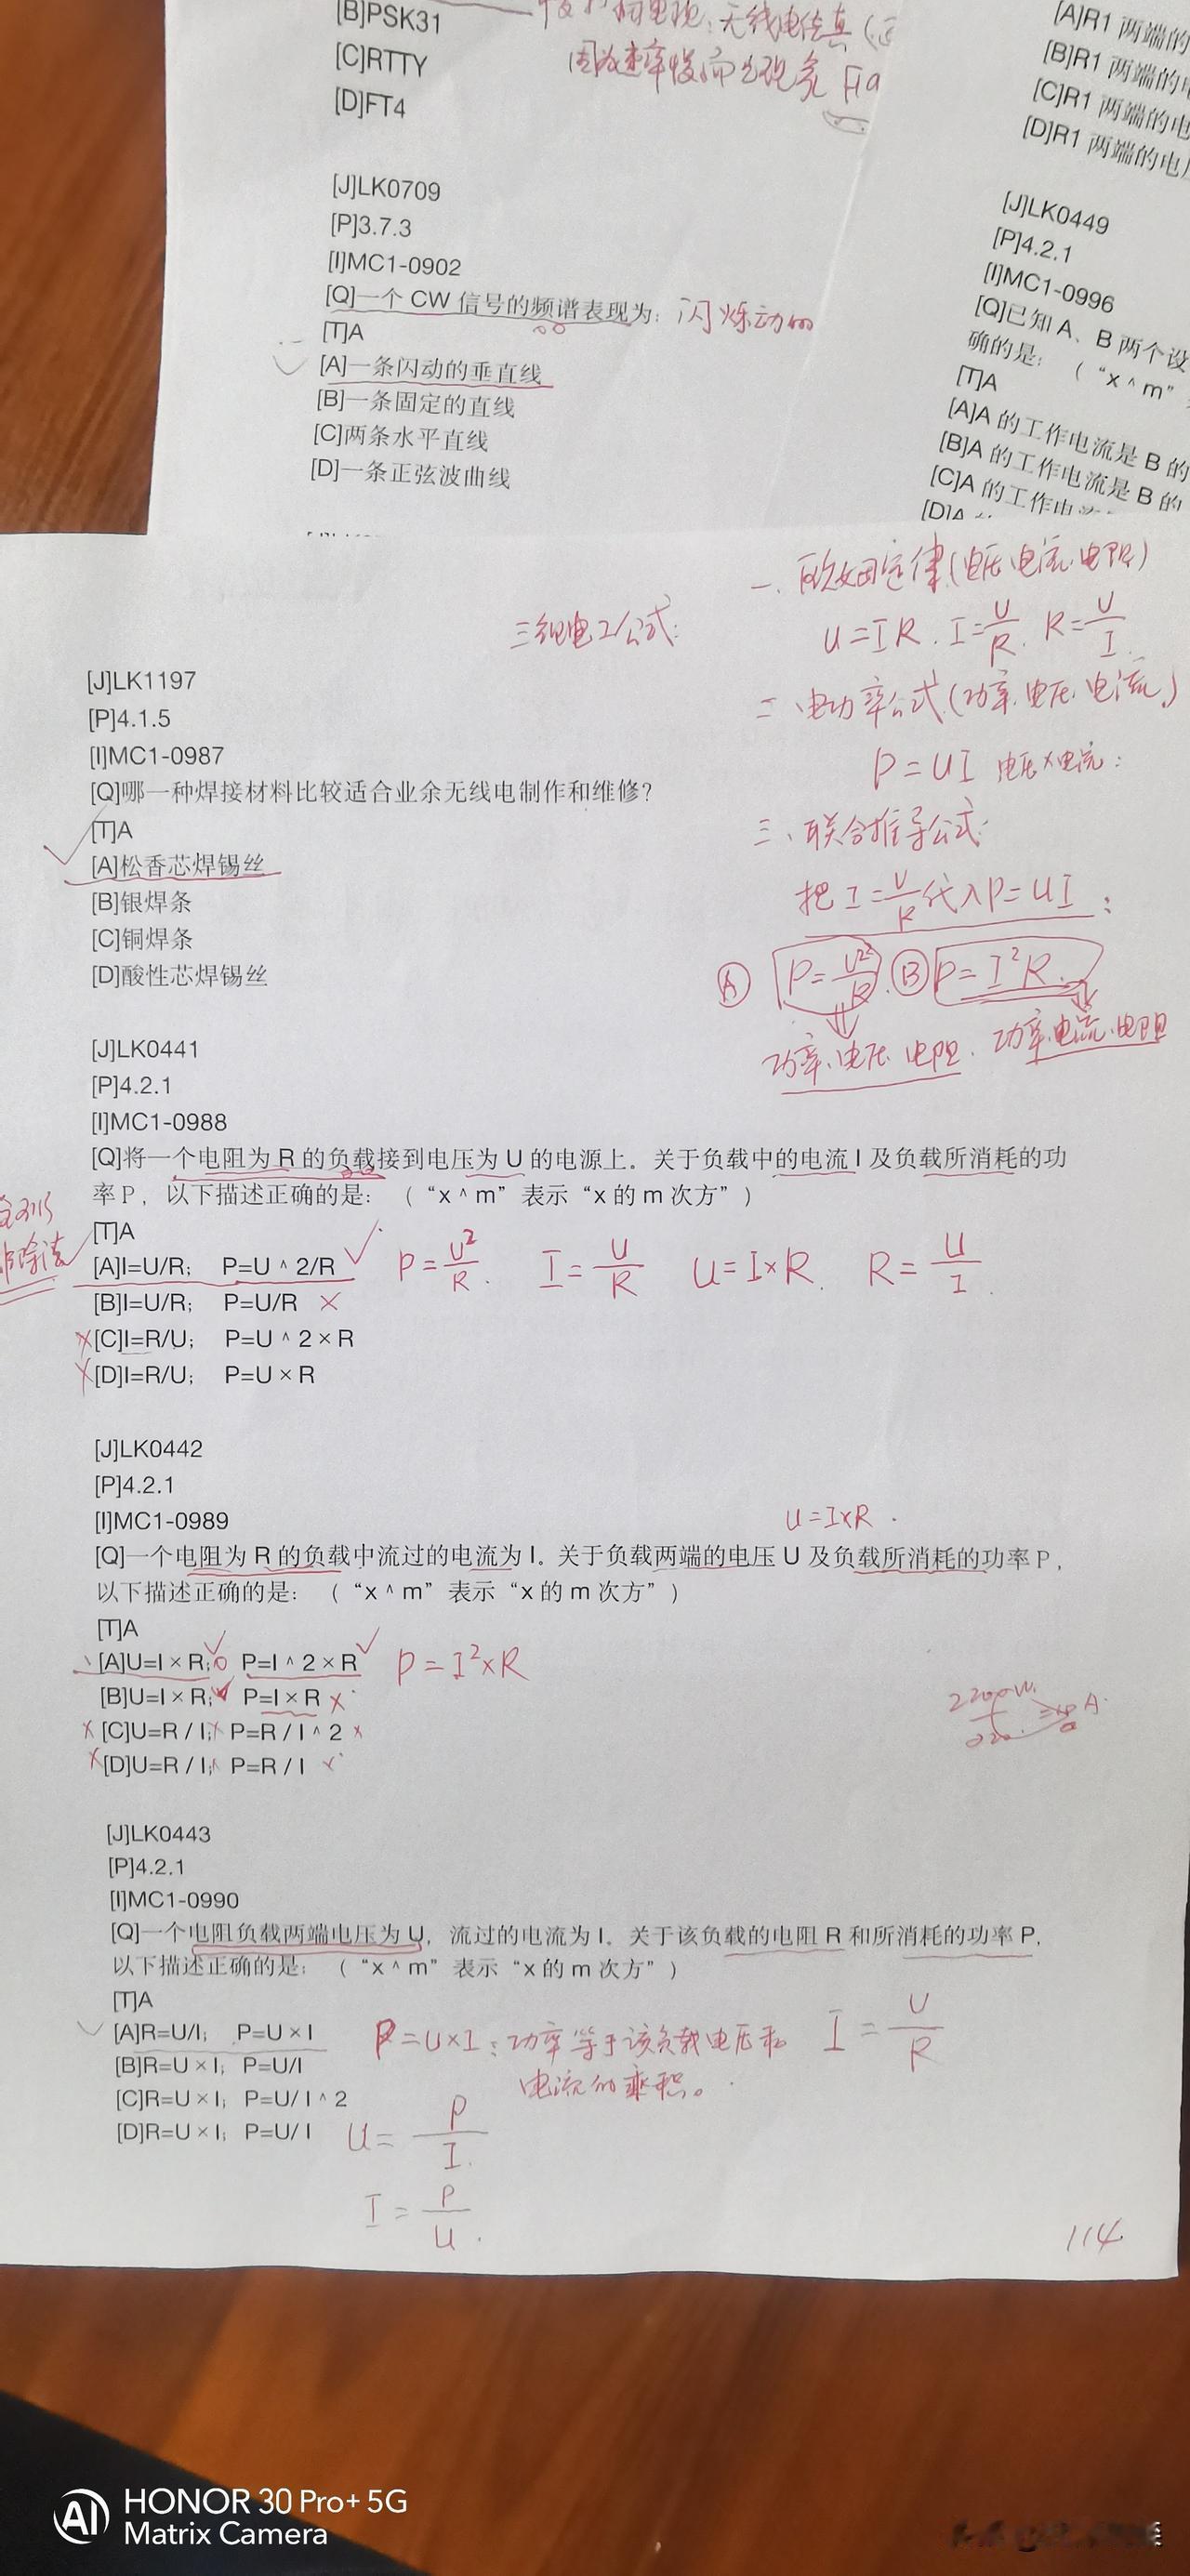 [B]PSK31
[C]RTTY
[D]FT4
无线电传真
因为速率慢而
[J]LK0709
[P]3.7.3
[I]MC1-0902
[Q]一个 CW 信号的频谱表现为: 闪烁动的
[T]A
[A]一条闪动的垂直线
[B]一条固定的直线
[C]两条水平直线
[D]一条正弦波曲线
[A]R1 两端的
[B]R1 两端的
[C]R1 两端的电
[D]R1 两端的电
[J]LK0449
[P]4.2.1
[I]MC1-0996
[Q]已知 A、B 两个设
确的是: (“x ^ m”
[T]A
[A]A 的工作电流是 B 的
[B]A 的工作电流是 B 的
[C]A 的工作电
三组电工公式:
一、欧姆定律(电压.电流.电阻)
U=IR. I=U/R. R=U/I.
二、电功率公式(功率.电压.电流.)
P=UI 电压×电流:
三、联合推导公式:
把I=U/R代入P=UI:
Ⓐ P=U²/R. Ⓑ P=I²R.
功率、电压、电阻. 功率.电流.电阻
[J]LK1197
[P]4.1.5
[I]MC1-0987
[Q]哪一种焊接材料比较适合业余无线电制作和维修?
[T]A
[A]松香芯焊锡丝
[B]银焊条
[C]铜焊条
[D]酸性芯焊锡丝
[J]LK0441
[P]4.2.1
[I]MC1-0988
[Q]将一个电阻为 R 的负载接到电压为 U 的电源上。关于负载中的电流 I 及负载所消耗的功
率 P, 以下描述正确的是: (“x ^ m” 表示 “x 的 m 次方”)
[T]A
[A]I=U/R; P=U ^ 2/R P=U²/R. I=U/R U=I×R. R=U/I.
[B]I=U/R; P=U/R
[C]I=R/U; P=U ^ 2 × R
[D]I=R/U; P=U × R
[J]LK0442
[P]4.2.1
[I]MC1-0989
U=I×R.
[Q]一个电阻为 R 的负载中流过的电流为 I。关于负载两端的电压 U 及负载所消耗的功率 P,
以下描述正确的是: (“x ^ m” 表示 “x 的 m 次方”)
[T]A
[A]U=I × R; P=I ^ 2 × R P=I²×R
[B]U=I × R; P=I × R
[C]U=R / I; P=R / I ^ 2
[D]U=R / I; P=R / I
2200W
[J]LK0443
[P]4.2.1
[I]MC1-0990
[Q]一个电阻负载两端电压为 U, 流过的电流为 I。关于该负载的电阻 R 和所消耗的功率 P,
以下描述正确的是: (“x ^ m” 表示 “x 的 m 次方”)
[T]A
[A]R=U/I; P=U × I P=U×I: 功率等于该负载电压和 I=U/R
[B]R=U × I; P=U/I 电流的乘积。
[C]R=U × I; P=U/ I ^ 2
[D]R=U × I; P=U/ I U=P/I.
I=P/U.
114
AI HONOR 30 Pro+ 5G
Matrix Camera